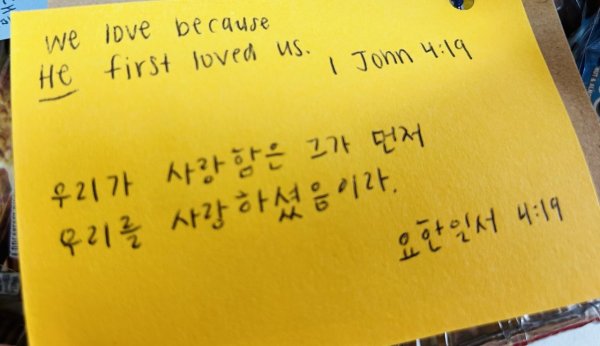 We love because
He first loved us. 1 John 4:19
우리가 사랑함은 그가 먼저
우리를 사랑하셨음이라.
요한일서 4:19